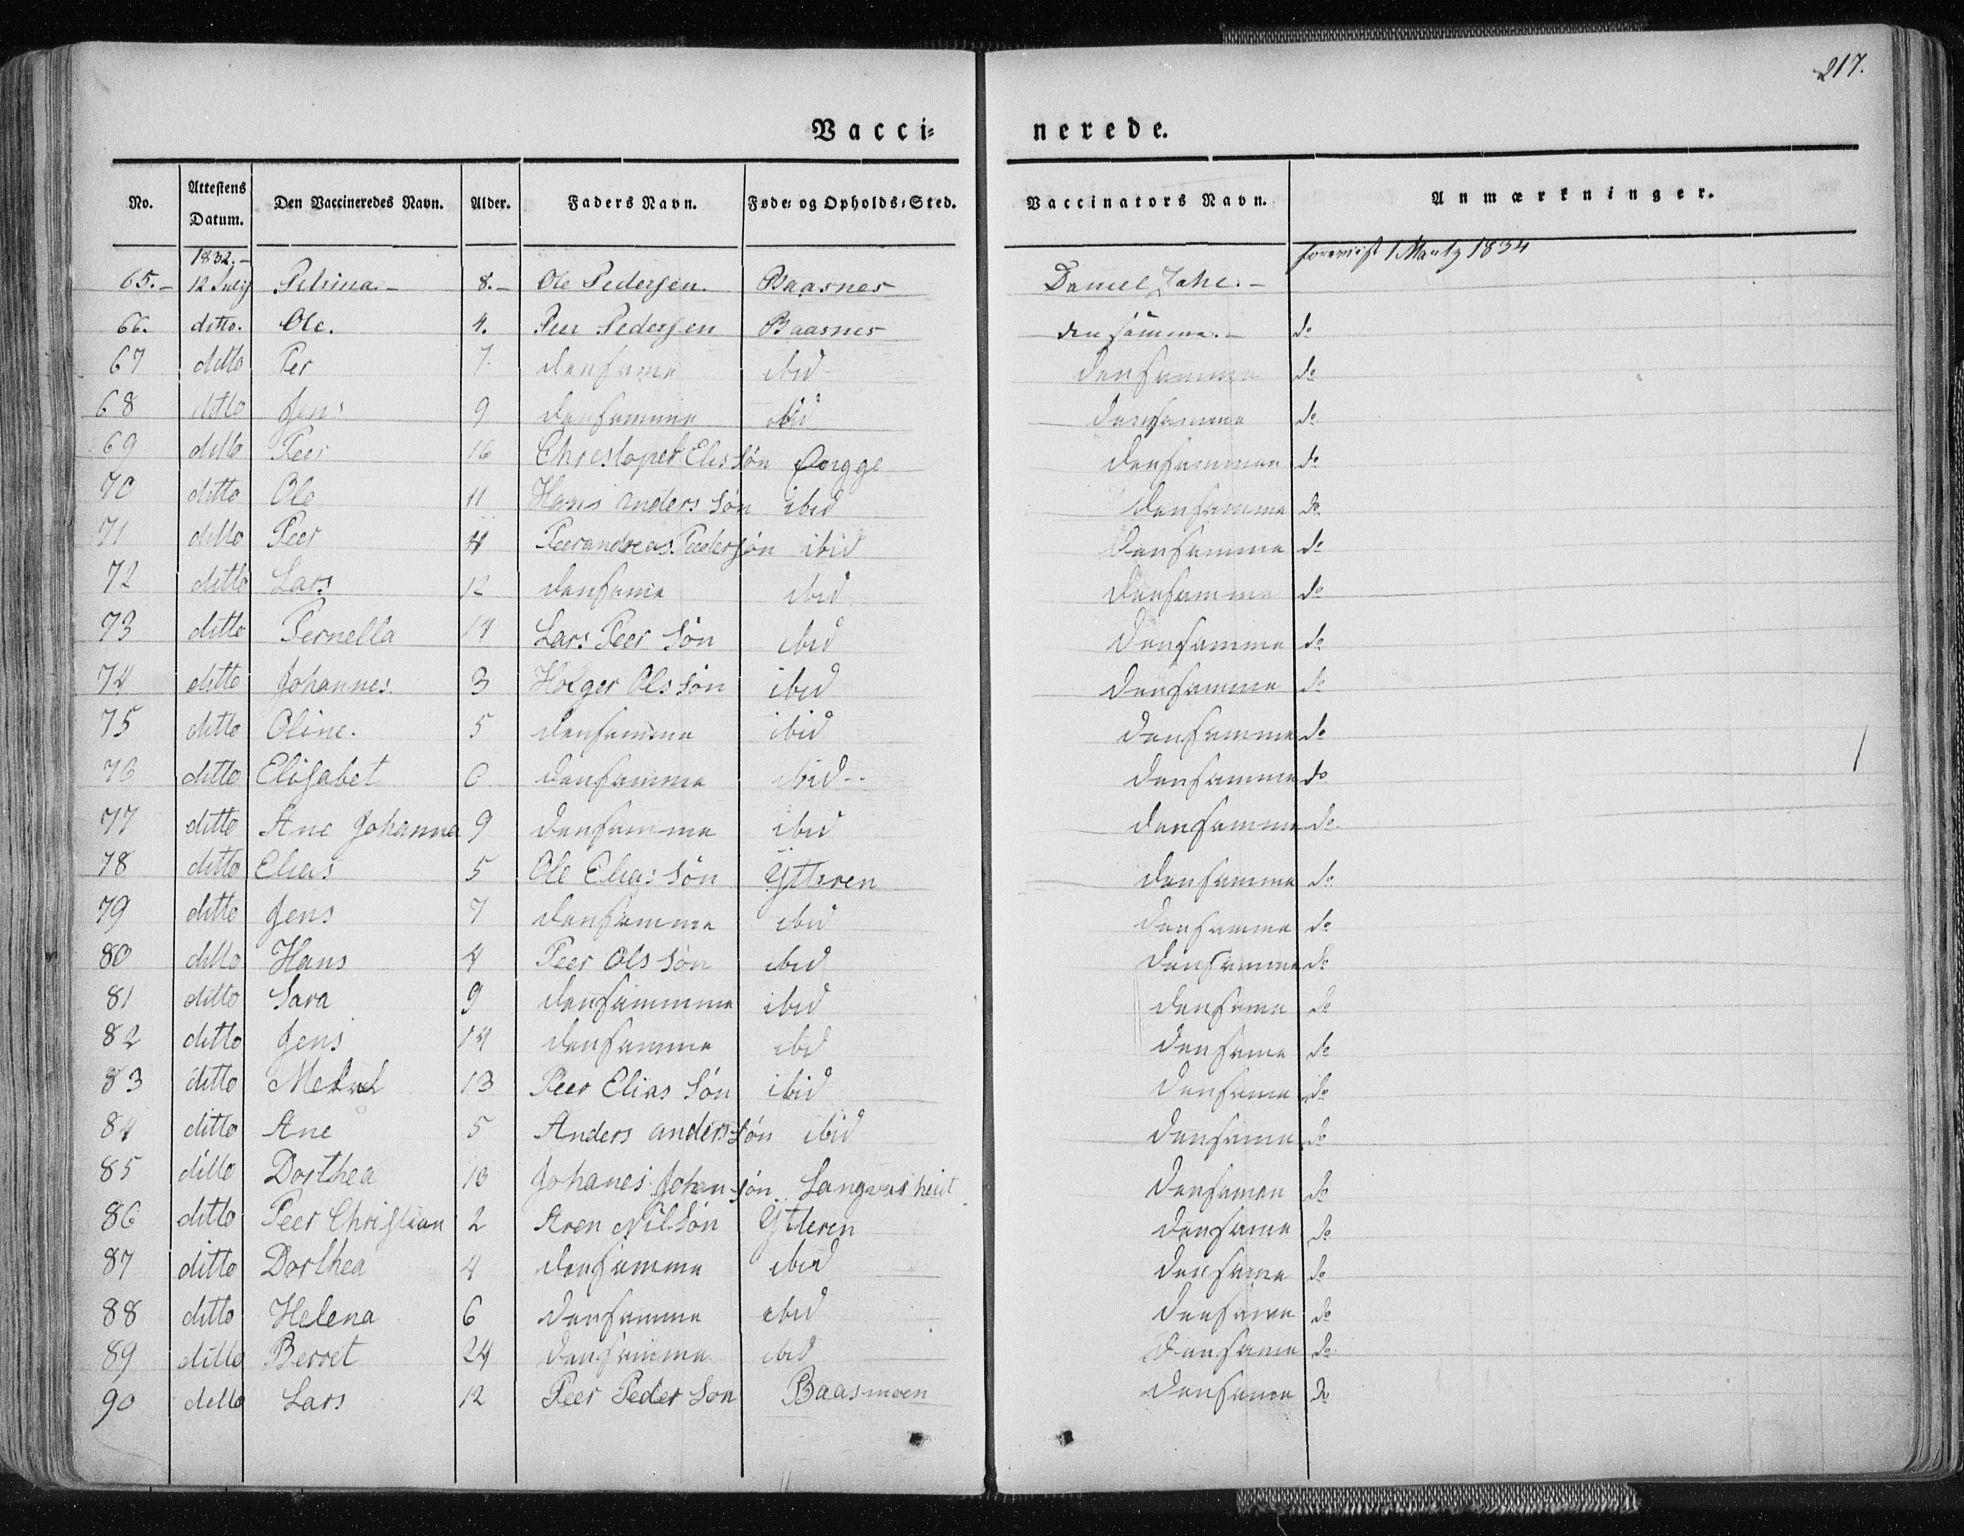 217.
Vacci= nerede.
No. Attestens Datum. Den Vaccineredes Navn. Alder. Faders Navn. Føde= og Opholds=Sted. Vaccinators Navn. Anmærkninger.
1832.- 1834
65.- 12 July Petrina- 8.- Ole Pedersen. Baasnes Daniel
66. ditto. Ole. 4. Peer Pedersen Baasnes den samme.- do
67 ditto Per 7. densame ibid densamme do
68 ditto Jens 9 densamme ibid densamme do
69 ditto Peer 16 Christopher Elissøn densamme do
70 ditto Ole 11 Hans anders søn ibid densamme do
71 ditto Peer Peerandreas Pedersøn ibid densamme do
72 ditto Lars 12 densame ibid densamme do
73 ditto Pernella 14 Lars Peer søn ibid densamme do
74 ditto Johannes. 3 Holger Ols søn ibid densamme do
75 ditto Oline. 5 densamme ibid densamme do
76 ditto Elisabet 0 densamme ibid-- densamme do
77 ditto Ane Johanna 9 densamme ibid densamme do.
78 ditto Elias 5 Ole Elias søn Ytteren densamme do
79 ditto Jens 7 densamme ibid densamme do
80 ditto Hans 4 Peer Ols søn ibid densamme do
81 ditto Sara 9 densammme ibid densame do
82 ditto Jens 14 densamme ibid densame do
83 ditto 13 Peer Elias søn ibid densame do
84 ditto Ane 5 Anders anders søn ibid densame do
85 ditto Dorthea 10 Johanes Johansøn. densamen do
86 ditto Peer Christian 2 Aren Nilsøn Ytteren densame do
87 ditto Dorthea 4 densamme ibid densame do
88 ditto Helena 6 densamme ibid densame do
89 ditto Berret 24 densamme ibid densame do
90 ditto Lars 12 Peer Peder søn Baasmoen densame do